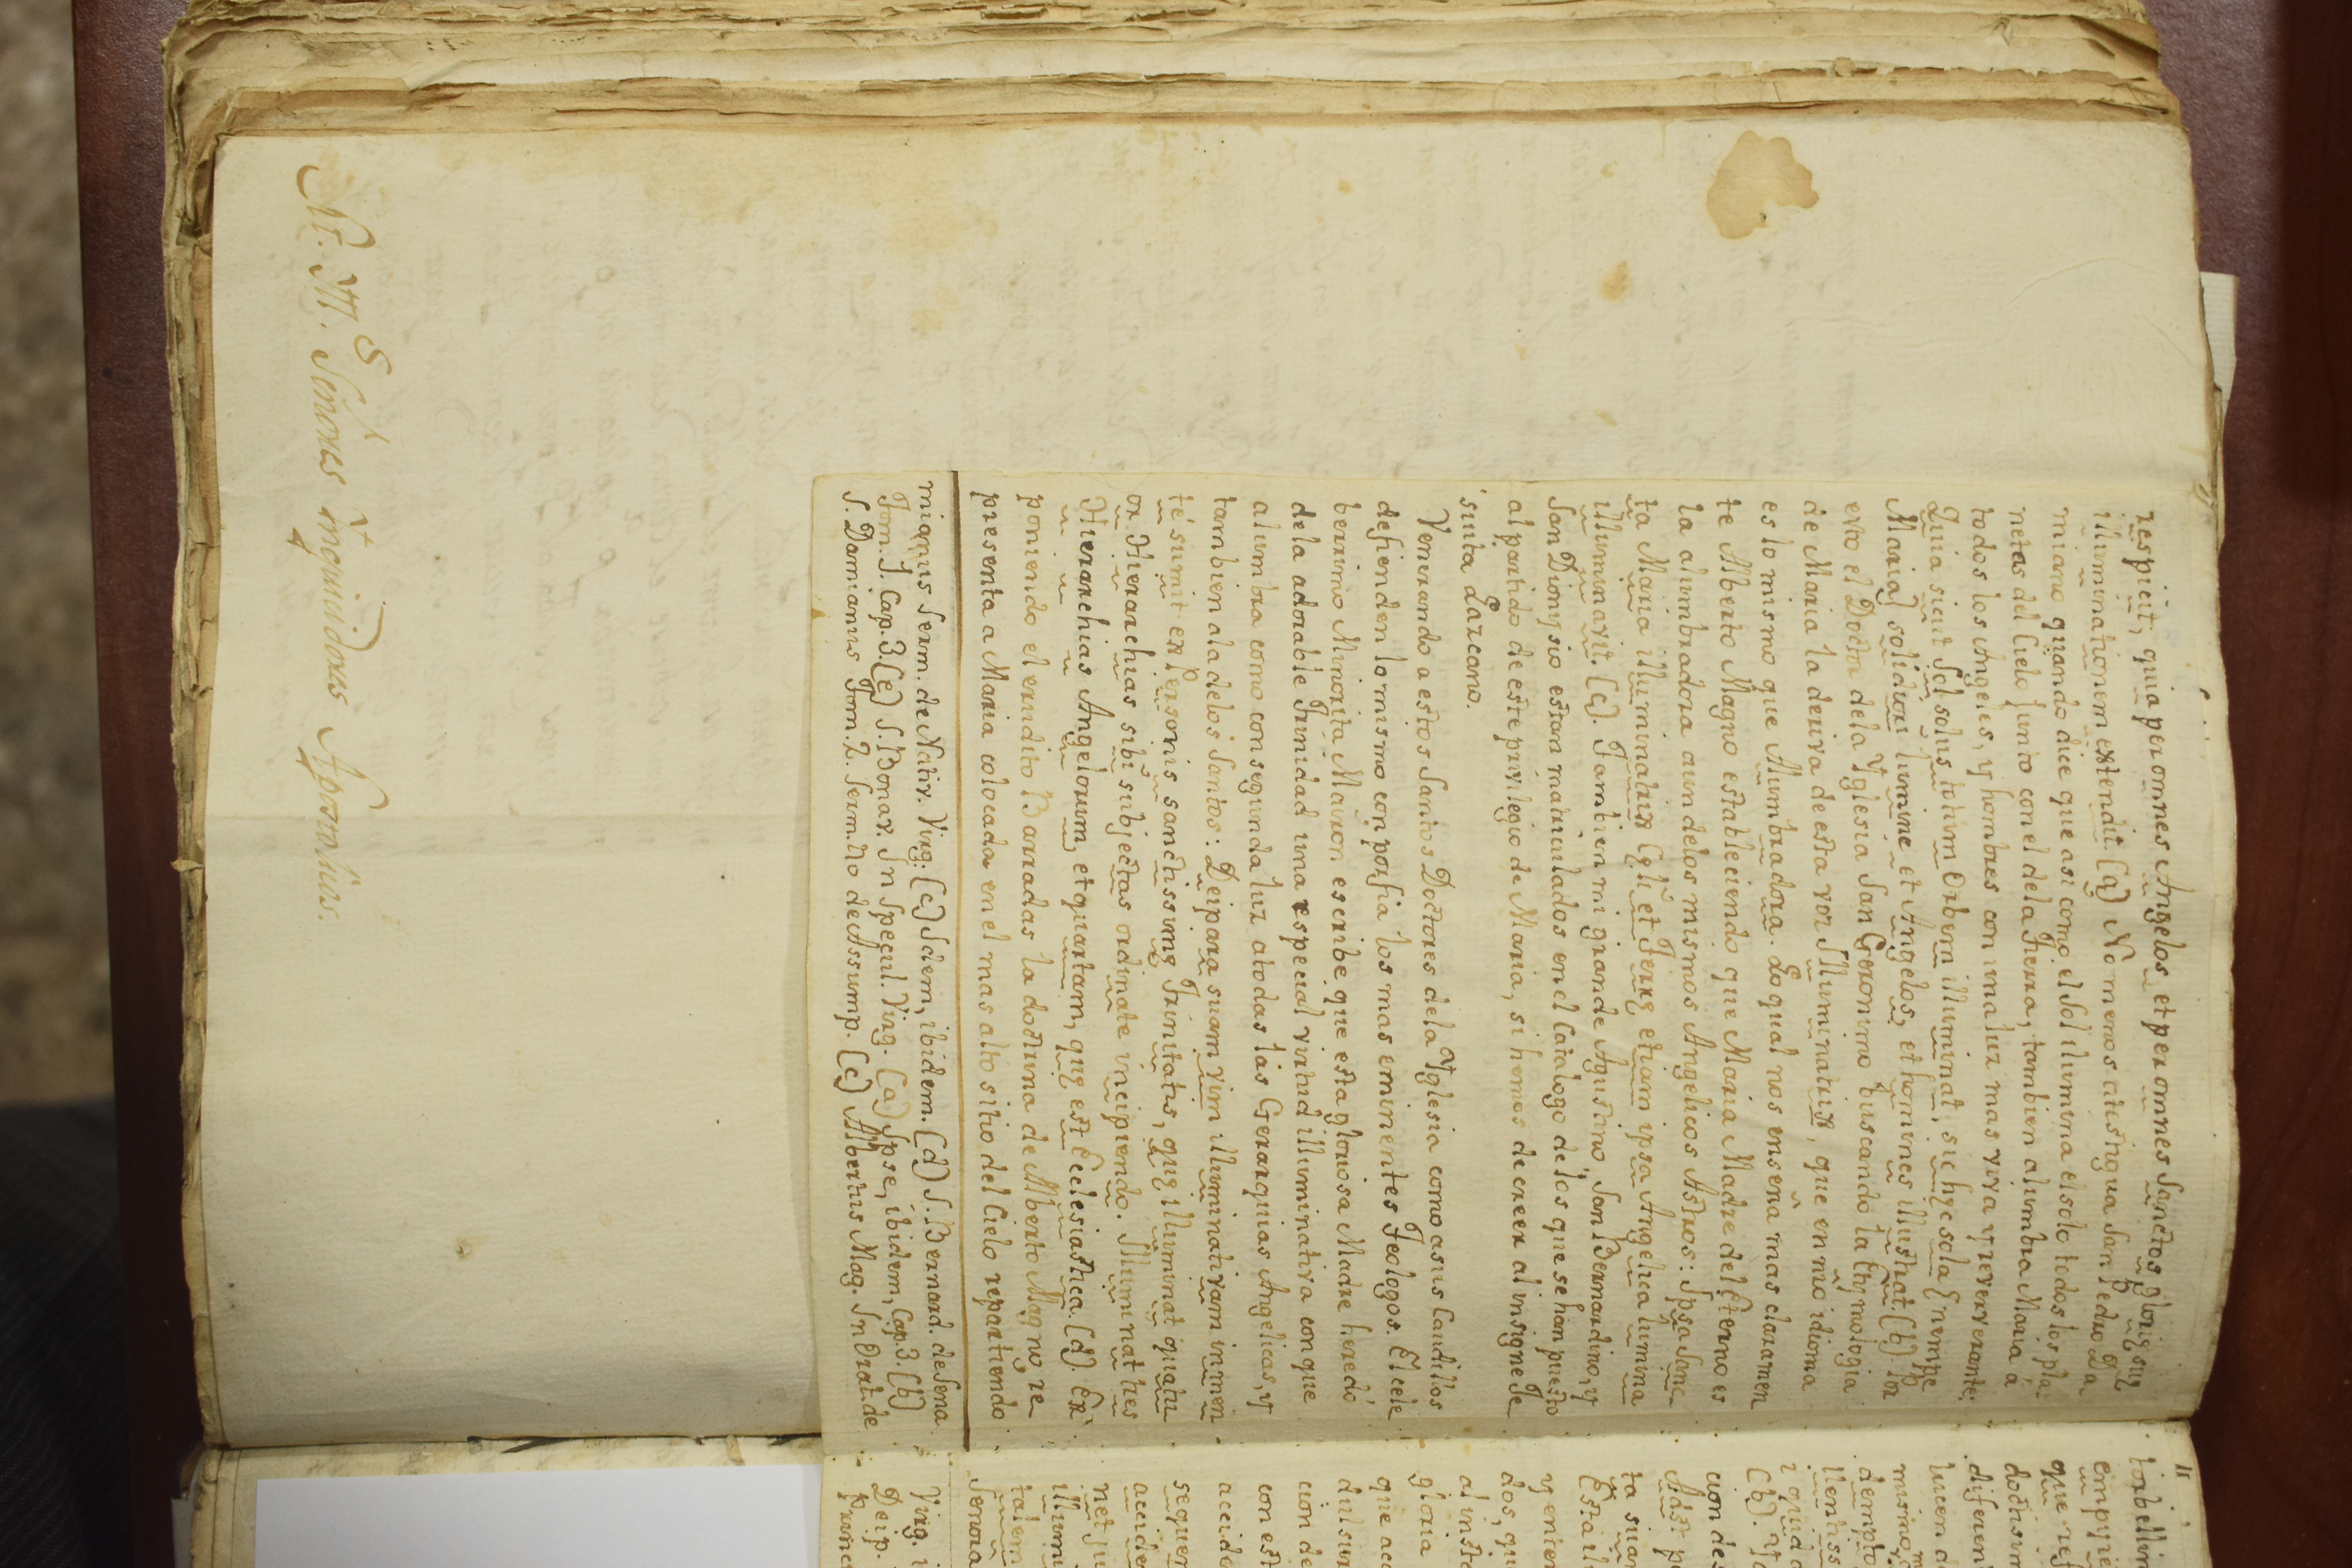 respicit; quia per omnes Angelos, et per omnes Sanctos gloriȩ suȩ
illuminationem extendit. (a) No menos atestigua San Pedro Da
miano quando dice que asi como el Sol ilumina el solo todos los pla
netas del Cielo junto con el de la Tierra, tambien alumbra Maria à
todos los Angeles, y hombres con una luz mas viva y reververante:
Quia sicut Sol solus totum Orbem illuminat, sic hȩc sola (nempe
Maria) solidiori lumine et Angelos, et homines illustrat. (b) Por
esto el Doctor de la Yglesia San Geronimo buscando la Ethymologia
de Maria la deriva de esta voz Illuminatrix, que en mio idioma
es lo mismo que Alumbradora. Lo qual nos enseña mas claramen
te Alberto Magno estableciendo que Maria Madre del Eterno es
la alumbradora aun de los mismos Angelicos Astros: Ipsa Sanc
ta Maria illuminatrix et Terrȩ etiam ipsa Angelica lumina
illuminavit. (c). Tambien mi grande Agustino, San Bernardino, y
San Dionysio estan matriculados en el Catalogo de los que se han puesto
al partido de este privilegio de Maria, si hemos de creer al insigne Je
suita Lazcano.
Venerando a estos Santos Doctores de la Yglesia como a sus Caudillos
defienden lo mismo con porfia los mas eminentes Teologos. El cele
berrimo Minorita Mairon escribe que esta gloriosa Madre heredó
de la adorable Trinidad una especial virtud illuminativa con que
alumbra como con segunda luz a todas las Gerarquias Angelicas, y
tambien a la de los Santos: Deipara suam vim illuminativam inmen
té sumit ex Personis sanctissimȩ Trinitatis, quȩ illuminat quatu
or Hierarchias sibi subjectas ordinate incipiendo. Illuminat tres
Hierarchias Angelorum, et quartam, quȩ est Ecclesiastica. (d). Ex
poniendo el erudito Barradas la doctrina de Alberto Magno re
presenta a Maria colocada en el mas alto sitio del Cielo repartiendo
mianus Serm. de Nativ. Virg. (c) Idem, ibidem. (d) S. Bernard. de Sena
Tom. I. Cap. 3. (e) S. Bonav. In Specul. Virg. (a) Ipse, ibidem, Cap. 3. (b)
S. Damianus Tom. 2. Serm. 40 de Assump. (c) Albertus Mag. In Orat. de
Sres Inquisidores Apostolicos.
torbellin
empyre
que ref
doctisim
diferen
lucen d
mismo,
dempto
llentiss
ta suam
y enten
dos, qu
al insta
gloria
que acc
cion de
con est
accide
sequen
accide
net su
illumi
talem
Señora
Virg. i
Deip.